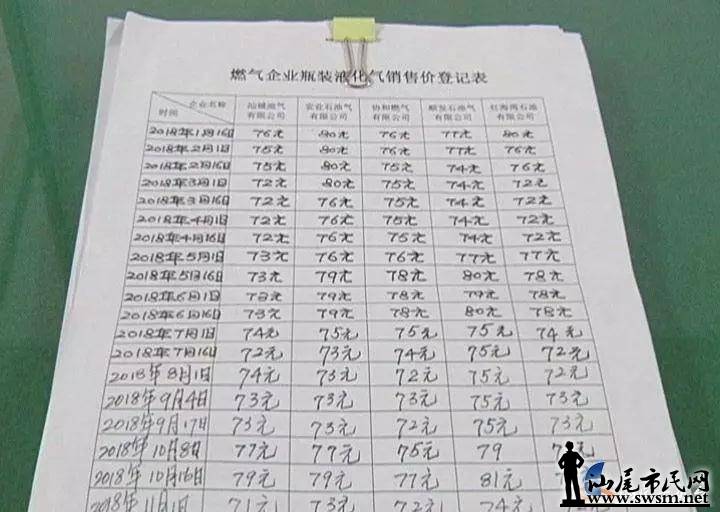 燃气企业瓶装液化气销售价登记表
企业名称 时间 汕城油气有限公司 安业石油气有限公司 协和燃气有限公司 顺发石油气有限公司 红海湾石油有限公司
2018年1月16日 76元 80元 76元 77元 80元
2018年2月1日 75元 80元 76元 77元 76元
2018年2月16日 75元 80元 75元 74元 76元
2018年3月1日 72元 80元 75元 74元 72元
2018年3月16日 72元 76元 75元 74元 72元
2018年4月1日 72元 76元 75元 74元 72元
2018年4月16日 72元 76元 75元 74元 72元
2018年5月1日 73元 76元 76元 77元 77元
2018年5月16日 73元 79元 78元 80元 78元
2018年6月1日 73元 79元 78元 79元 78元
2018年6月16日 73元 79元 78元 80元 78元
2018年7月1日 74元 75元 75元 75元 74元
2018年7月16日 72元 73元 74元 75元 72元
2018年8月1日 74元 73元 72元 75元 72元
2018年9月4日 73元 73元 73元 75元 73元
2018年9月17日 73元 73元 72元 75元 73元
2018年10月8日 77元 77元 75元 79
2018年10月16日 79元 79元 77元 81元
2018年11月1日 71元 73元 72元 74元
汕尾市民网
www.swsm.net